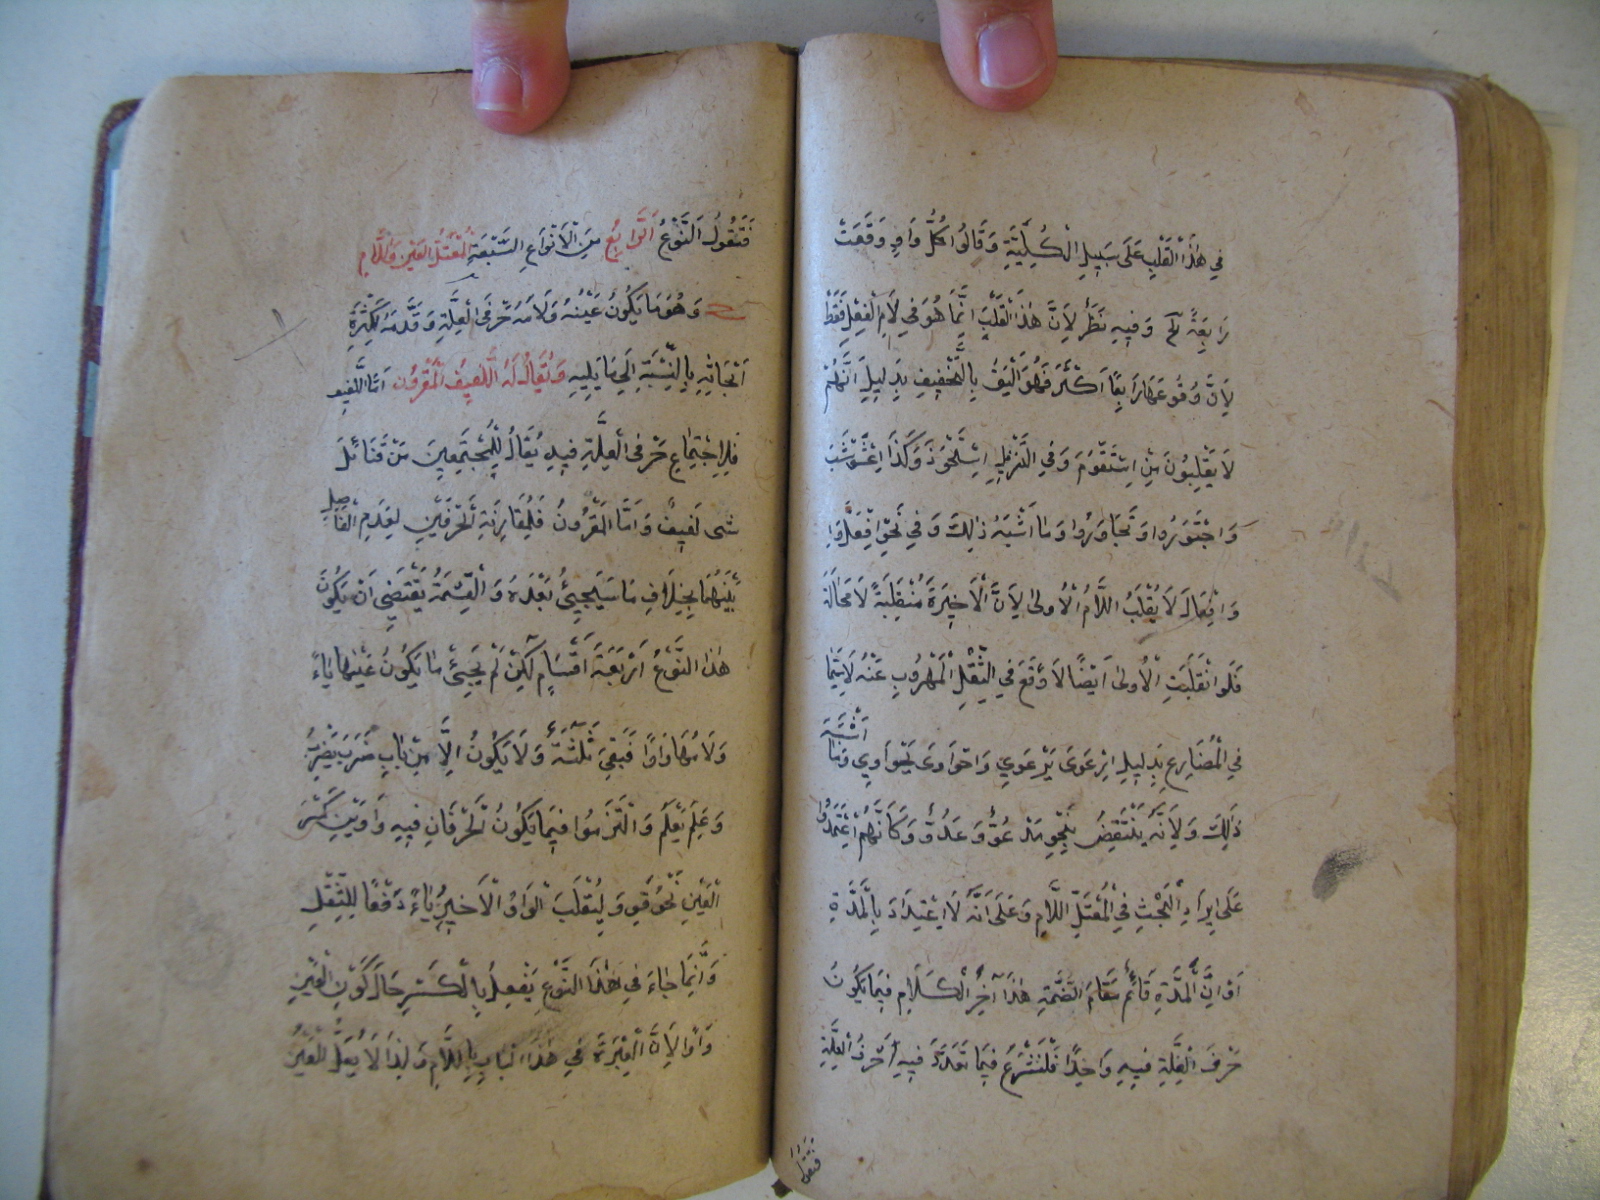 في هذا القلب على سبيل الكلية وقالوا كل واو وقعت
رابعة وفيه نظر لأن هذا القلب إنما هو في لام الفعل فقط
لأن وقوعها رابعا أكثر فهو أليق بالتخفيف بدليل أنهم
لا يقلبون من استقوم وفي التنزيل استحوذ وكذا اعشوشب
واجتوروا وتجاوروا وما أشبه ذلك وفي نحو افعل وا
وافعال لا يقلب اللام الأولى لأن الأخيرة منقلبة لا محالة
فلو انقلبت الأولى أيضا لا وقع في الثقل المهروب عنه لا سيما
في المضارع بدليل ارعوى يرعوي واحواوى يحواوي وما أشبه
ذلك ولأنه ينتقض بنحو مدعو وعدو وكأنهم اعتمدوا
على إيراد البحث في المعتل اللام وعلى أنه لا اعتداد بالمدة
أو أن المدة قائم مقام الضمة هذا آخر الكلام فيما يكون
حرف العلة فيه واحدا فلنشرع فيما تعدد فيه أحرف العلة
فنقول
فنقول النوع الرابع من الأنواع السبعة المعتل العين واللام
وهو ما يكون عينه ولامه حرفى العلة وقدمه لكثرة
أبحاثه بالنسبة إلى ما يليه ويقال له اللفيف المقرون أما اللفيف
فلاجتماع حرفى العلة فيه يقال للمجتمعين من قبائل
شتى لفيف وأما المقرون فلمقارنة الحرفين لعدم الفاصل
بينهما بخلاف ما سيجيئ بعده والقسمة يقتضي أن يكون
هذا النوع أربعة أقسام لكن لم يجيئ ما يكون عينها ياء
ولامها واوا فبقي ثلثة ولا يكون إلا من باب ضرب يضرب
وعلم يعلم والتزموا فيما يكون الحرفان فيه واوين كسر
العين نحو قوو ليقلب الواو الأخير ياء دفعا للثقل
وإنما جاء في هذا النوع يفعل بالكسر حال كون العين
واوا لأن العبرة في هذا الباب باللام ولذا لا يعل العين